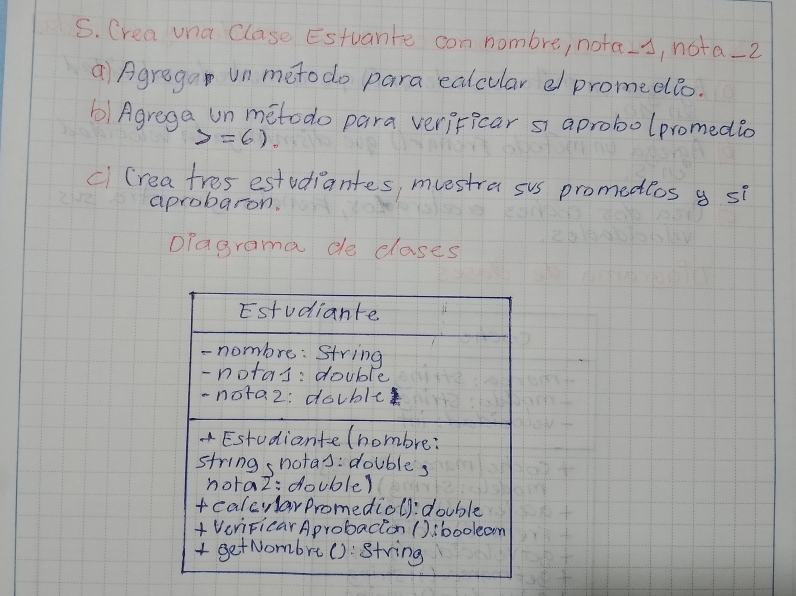 5. Crea una Clase Estuante con nombre, nota_1, nota_2
a) Agregar un método para calcular el promedio.
b) Agrega un método para verificar si aprobo (promedio
>=6).
c) Crea tres estudiantes, muestra sus promedios y si
aprobaron.
Diagrama de clases
Estudiante
- nombre: String
- nota1: double
- nota2: double
+ Estudiante (nombre:
string, nota1: double,
nota2: double)
+ calcularPromedio(): double
+ VerificarAprobacion (): boolean
+ getNombre (): String